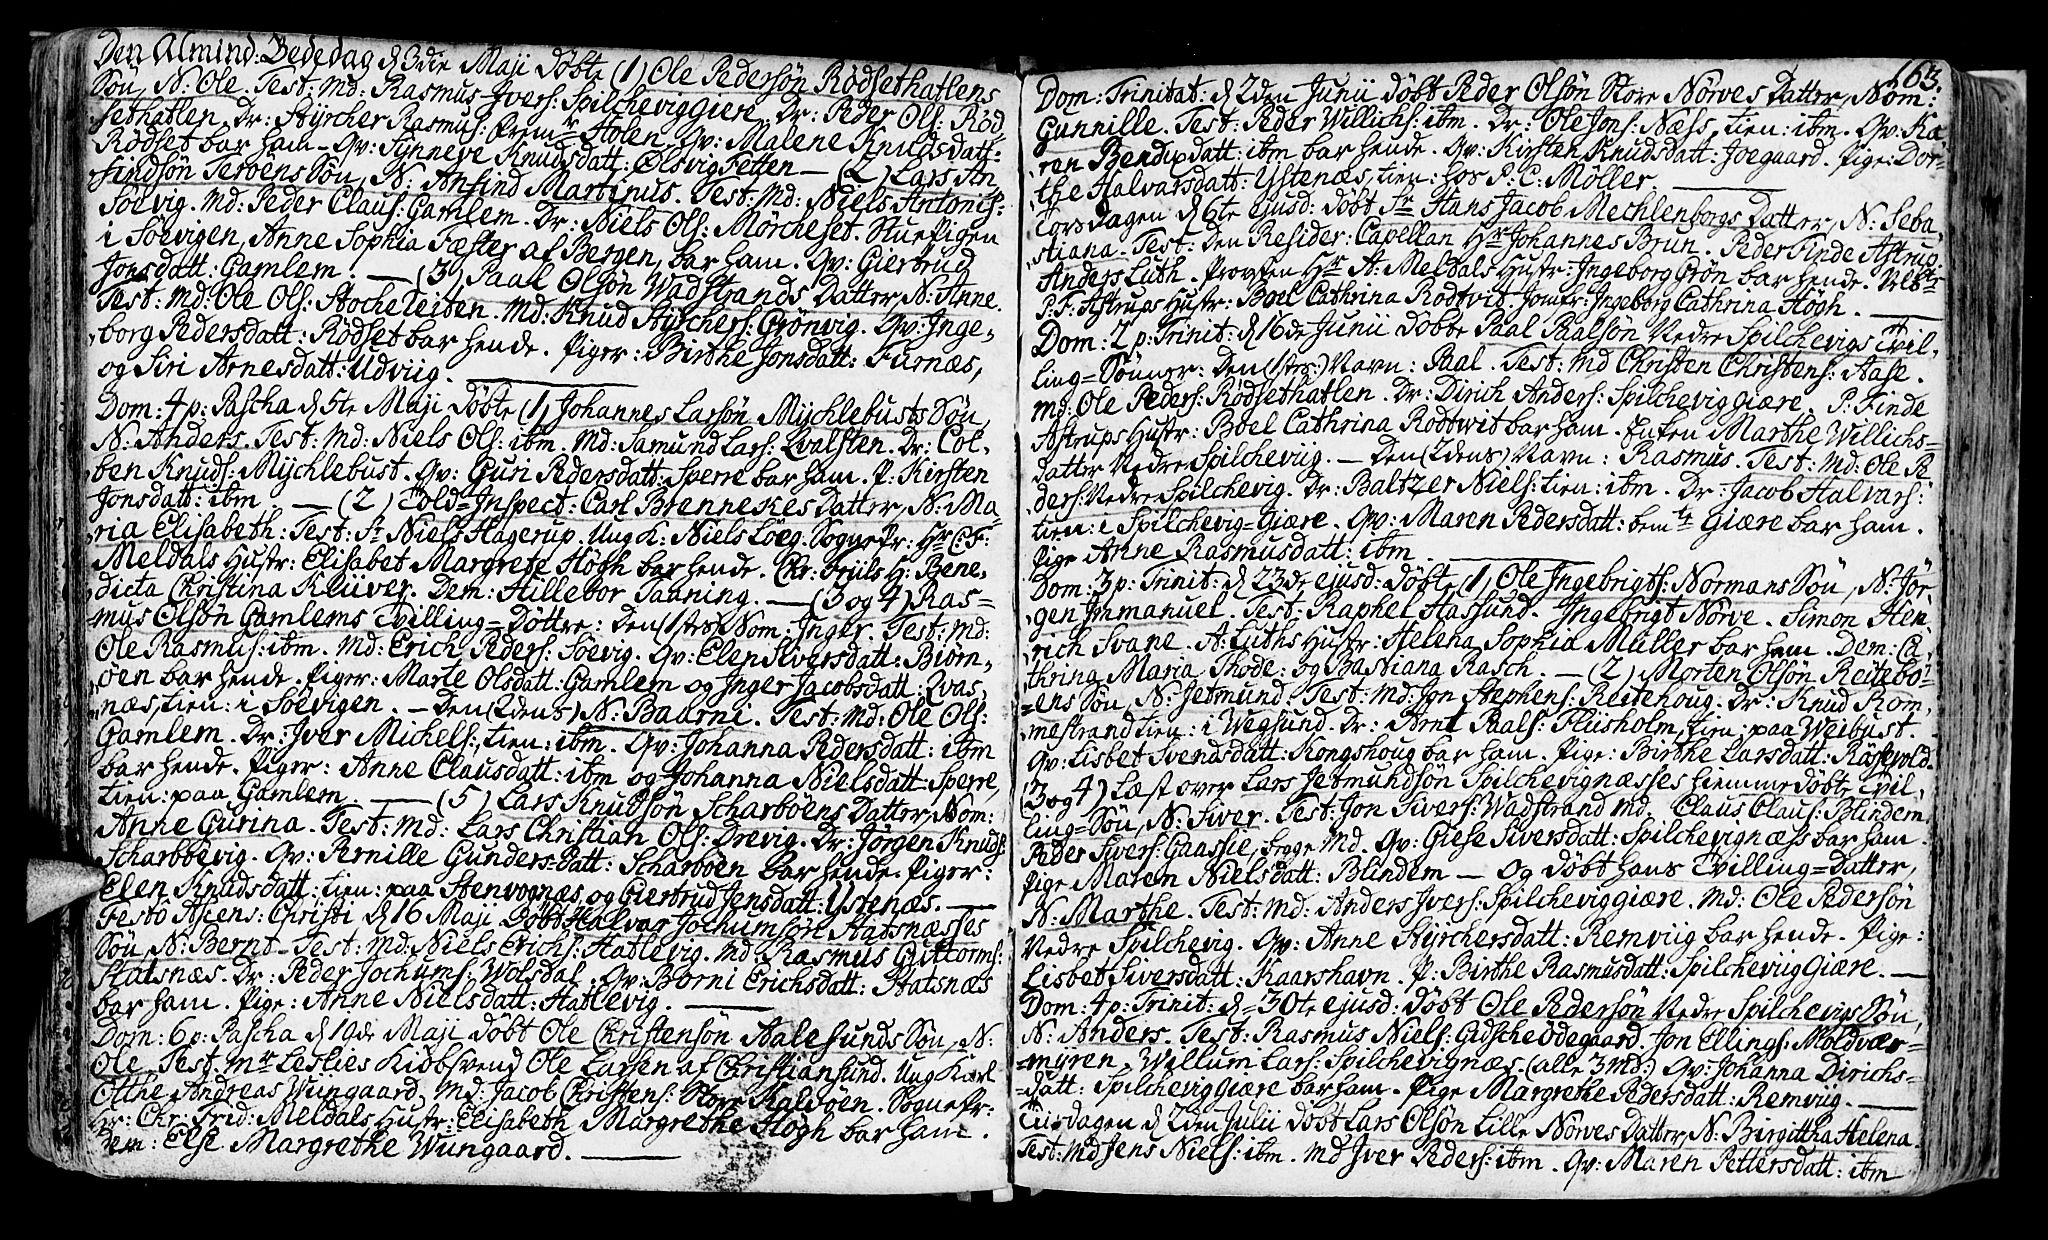 Den Almind: Bededag d 3die Maji döbte (1) Ole Pedersön Rödsethatlens
Sön, N. Ole. Test: Md: Rasmus Ivers: Spilchevig Giære. Dr: Peder Ols: Röd,
sethatlen. Dr: Styrcher Rasmus: Holen. Qv: Malene Knudsdatt:
Rödset bar ham. Qv: Synneve Knudsdatt: Olsvig Fetten — (2) Lars An,
findsön Teröens Sön, N: Anfind Martinus. Test: Md: Niels Antonis:
Söevig. Md: Peder Claus: Gamlem. Dr: Niels Ols: Mörcheset. Stuepigen
i Söevigen, Anne Sophia Fæster af Bergen, bar ham. Qv: Giertrud
Jonsdatt: Gamlem. — (3) Paal Olsön Wadstrands Datter, N: Anne.
Test: Md: Ole Ols: Stocheleiten. Md: Knud Styrchers: Grönvig. Qv: Inge,
borg Pedersdatt: Rödset bar hende. Piger: Birthe Jonsdatt: Furnæs,
og Siri Arnesdatt: Udviig. —
Dom: 4 p: Pascha d 5te Maji döbte (1) Johannes Larsön Mychlebusts Sön,
N: Anders. Test: Md: Niels Ols: ibm. Md: Samund Lars: Qvalsten. Dr: Col-
ben Knuds: Mychlebust. Qv: Guri Pedersdatt: Sperre bar ham. P: Kirsten
Jonsdatt: ibm — (2) Told-Inspect: Carl Brennekes Datter, N: Ma-
ria Elisabeth: Test: Sr Niels Hagerup. Ung K: Niels Löeg. Sognepr: Hr C F:
Meldals Hustr: Elisabet Margrete Högh bar hende. Chr: Früls H: Bene,
dicta Christina Klüver. Dem: Hillebor Saaning. — (3 og 4) Ras=
mus Olsön Gamlems Tvilling=Döttre: Den (1stes) Nom: Inger. Test: Md:
Ole Rasmus: ibm. Md: Erich Peders: Söevig. Qv: Elen Siversdatt: Biörn,
öen bar hende. Piger: Marte Olsdatt: Gamlem og Inger Jacobsdatt: Qvas,
næs, tien: i Söevigen. — Den (2dens) N: Baarni. Test: Md: Ole Ols:
Gamlem. Dr: Iver Michels:, tien: ibm. Qv: Johanna Pedersdatt: ibm
bar hende. Piger: Anne Clausdatt: ibm og Johanna Nielsdatt: Sperre,
tien: paa Gamlem. — (5) Lars Knudsön Scharböens Datter, Nom:
Anne Gurina. Test: Md: Lars Christian Ols: Drevig. Dr: Jörgen Knuds:
Scharböevig. Qv: Pernille Gunders=Datt: Scharböen bar hende. Piger:
Elen Knudsdatt: tien: paa Stenvognæs og Giertrud Jensdatt: Ystenæs. —
Festo Ascens: Christi d 16 Maji döbt Halvar Jochumsön Statsnæsses
Sön, N: Bernt. Test: Md: Niels Erichs: Hatlevig. Md: Rasmus Guttorms:
Statsnæs. Dr: Peder Jochums: Wolsdal. Qv: Borni Erichsdatt: Statsnæs
bar ham. Pige: Anne Nielsdatt: Hatlevig. —
Dom: 6 p: Pascha d 19de Maji döbt Ole Christensön Aalesunds Sön, N:
Ole. Test: Mr Leslies Kiöbsvend Ole Larsen af Christiansund. Ung Karl
Otthe Andreas Wungaard. Md: Jacob Christens: Store Kalvöen. Sognepr:
Hr: Chr: Frid: Meldals Hustr: Elisabeth Margrethe Högh bar ham.
Dem: Else Margrethe Wungaard. —
163.
Dom: Trinitat: d 2den Junii döbt Peder Olsön Store Nörves Datter, Nom:
Gunnille. Test: Peder Willichs: ibm. Dr: Ole Jons: Næss, tien: ibm. Qv: Ka-
ren Bendixdatt: ibm bar hende. Qv: Kirsten Knudsdatt: Joegaard. Pige: Dor-
the Halvarsdatt: Ystenæs, tien: hos P: C: Möller. —
Torsdagen d 6te ejusd: döbt Sr Hans Jacob Mechlenborgs Datter, N: Seba,
stiana. Test: Den Resider: Capellan Hr Johannes Brun. Peder Finde Astrup.
Anders Luth. Provsten Hr A: Meldals Hustr: Ingeborg Grön bar hende.
P: F: Astrups Hustr: Boel Cathrina Rodtvit. Jomfr: Ingeborg Cathrina Högh. —
Dom: 2 p: Trinit: d 16de Junii döbte Paal Paalsön Nedre Spilchevigs Tvil,
ling=Sönner: Den (1stes:) Navn: Paal. Test: Md Christen Christens: Aase.
Md: Ole Peders: Rödsethatlen. Dr: Dirich Anders: Spilchevig Giære. P: Finde
Astrups Hustr: Boel Cathrina Rodtwit bar ham. Enken Marthe Willichs-
datter Nedre Spilcheviig. — Den (2dens) Navn: Rasmus. Test: Md: Ole Pe
ders: Nedre Spilchevig. Dr: Baltzer Niels: tien: ibm. Dr: Jacob Halvars:
tien: i Spilchevig=Giære. Qv: Maren Pedersdatt: bemte Giære bar ham.
Pige Anne Rasmusdatt: ibm. —
Dom: 3 p: Trinit: d 23de ejusd: döbte (1) Ole Ingebrigts: Normans Sön, N: Jör
gen Immanuel. Test: Raphel Haslund. Ingebrigt Nörve. Simon Hen,
rich Svane. A: Luths Hustr: Helena Sophia Müller bar ham. Dem: Ca-
thrina Maria Thode: og Bastiana Rasch. — (2) Morten Olsön Reitebö
ens Sön, N: Jetmund. Test: Md: Jon Stephens: Reitehoug. Dr: Knud Rom,
mestrand tien: i Wegsund. Dr: Arnt Paals: Fliisholm, tien: paa Weibust.
Qv: Lisbet Svendsdatt: Kongshoug bar ham. Pige: Birthe Larsdatt: Rössevold.
(3 og 4) Læst over Lars Jetmundsön Spilchevignæsses hiemmedöbte Tvil,
ling=Sön, N: Siver. Test: Jon Sivers: Wadstrand Md. Claus Claus: Blindem
Peder Sivers: Gaassie, begge Md. Qv: Giese Siversdatt: Spilchevignæss bar ham.
Pige Maren Nielsdatt: Blindem — Og döbt hans Tvilling=Datter,
N: Marthe. Test: Md: Anders Ivers: Spilcheviggiære. Md: Ole Pedersön
Nedre Spilchevig. Qv: Anne Styrchersdatt: Remviig bar hende. Pige:
Lisbet Siversdatt: Kaarshavn. P: Birthe Rasmusdatt: Spilcheviig Giære. —
Dom: 4 p: Trinit: d 30te ejusd: döbt Ole Pedersön Nedre Spilchevigs Sön,
N: Anders. Test: Rasmus Niels: Gidsche Ödegaard. Jon Ellings: Moldvær-
myren. Willum Lars: Spilchevignæs. (alle 3 Md:) Qv: Johanna Dirichs-
datt: Spilchevig Giære bar ham. Pige Margrethe Pedersdatt: Remviig. —
Tirsdagen d 2den Julii döbt Lars Olsön Lille Nörves Datter, N: Birgittha Helena.
Test: Md Jens Niels: ibm. Md Iver Peders: ibm. Qv: Maren Pettersdatt: ibm